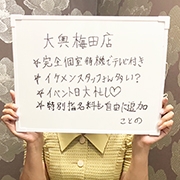 大興梅田店
＊完全個室待機でテレビ付き
＊イケメンスタッフさん多い？
＊イベント日大忙し♡
＊特別指名料も自由に追加
ことの